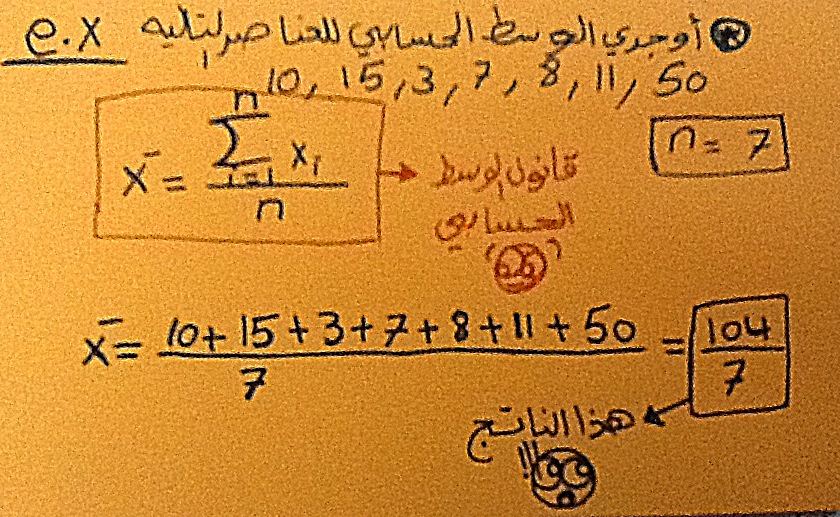 e.x أوجدي الوسط الحسابي للعناصر التاليه
10, 15, 3, 7, 8, 11, 50
n = 7
x̄ = \frac{\sum_{i=1}^{n} x_i}{n}
قانون الوسط
الحسابي
x̄ = \frac{10+15+3+7+8+11+50}{7} = \frac{104}{7}
هذا الناتج
!!!